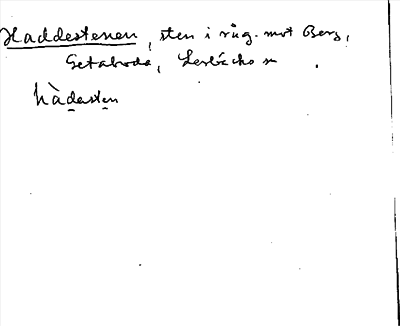 Haddestenen, sten i råg. mot Berg,
Getaboda, Lerbäcks sn.
hàdesten